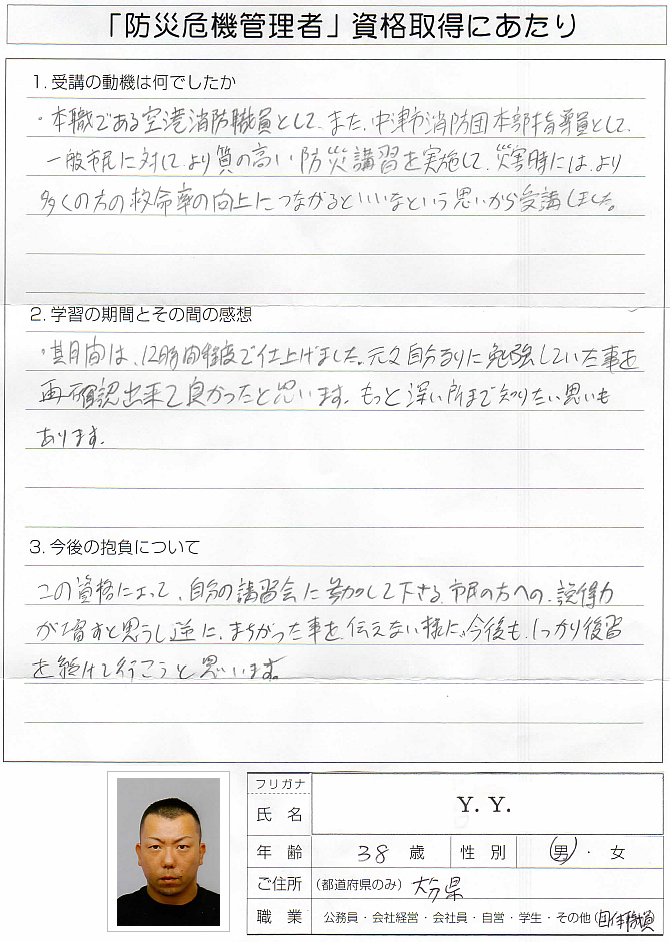 「防災危機管理者」資格取得にあたり
1. 受講の動機は何でしたか
・本職である空港消防職員として、また、中津市消防団本部指導員として、
一般市民に対して、より質の高い防災講習を実施して、災害時には、より
多くの方の救命率の向上につながるといいなという思いから受講しました。
2. 学習の期間とその間の感想
・其月間は、12時間程度で仕上げました。元々自分なりに勉強していた事を
再確認出来て良かったと思います。もっと深い所まで知りたい思いも
あります。
3. 今後の抱負について
この資格によって、自分の講習会に参加して下さる、市民の方への、説得力
が増すと思うし逆に、まちがった事を伝えない様に、今後も、しっかり後習
を続けて行こうと思います。
フリガナ
氏 名 Y. Y.
年 齢 38 歳 性 別 男 ・ 女
ご住所 (都道府県のみ) 大分県
職 業 公務員・会社経営・会社員・自営・学生・その他(